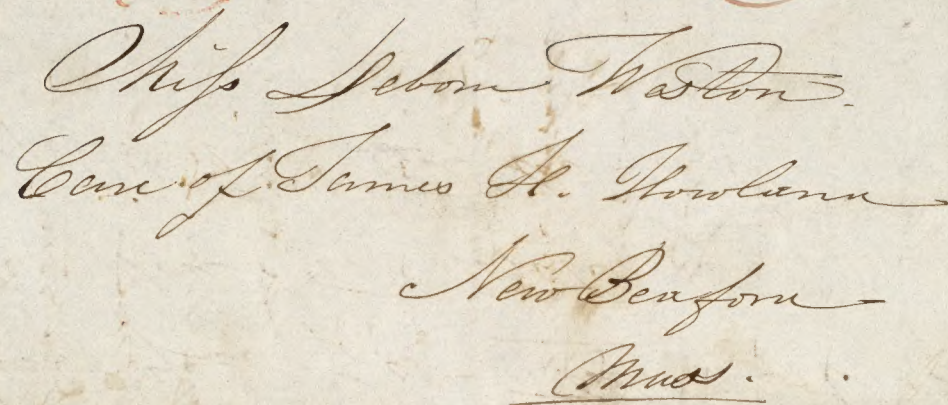 Miss Debora Weston.
Care of James H. Howland
New Bedford
Mass.